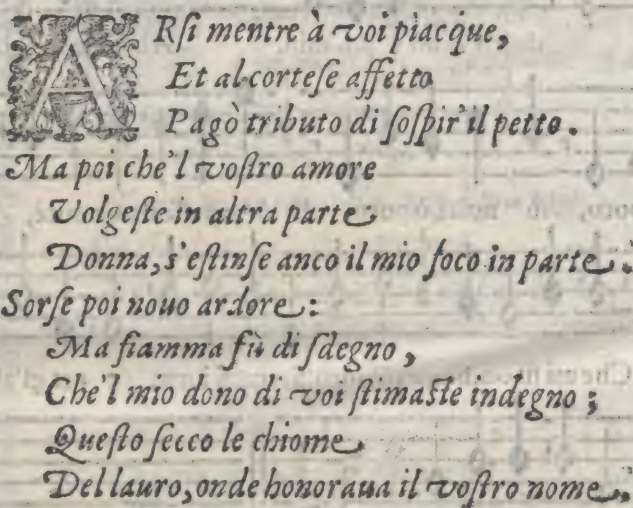 ARſi mentre à voi piacque,
Et al corteſe affetto
Pagò tributo di ſoſpir' il petto.
Ma poi che'l voſtro amore
Volgeſte in altra parte:
Donna, s'eſtinſe anco il mio foco in parte.
Sorſe poi nouo ardore:
Ma fiamma fù di ſdegno,
Che'l mio dono di voi ſtimaſte indegno;
Queſto ſecco le chiome
Del lauro, onde honoraua il voſtro nome.